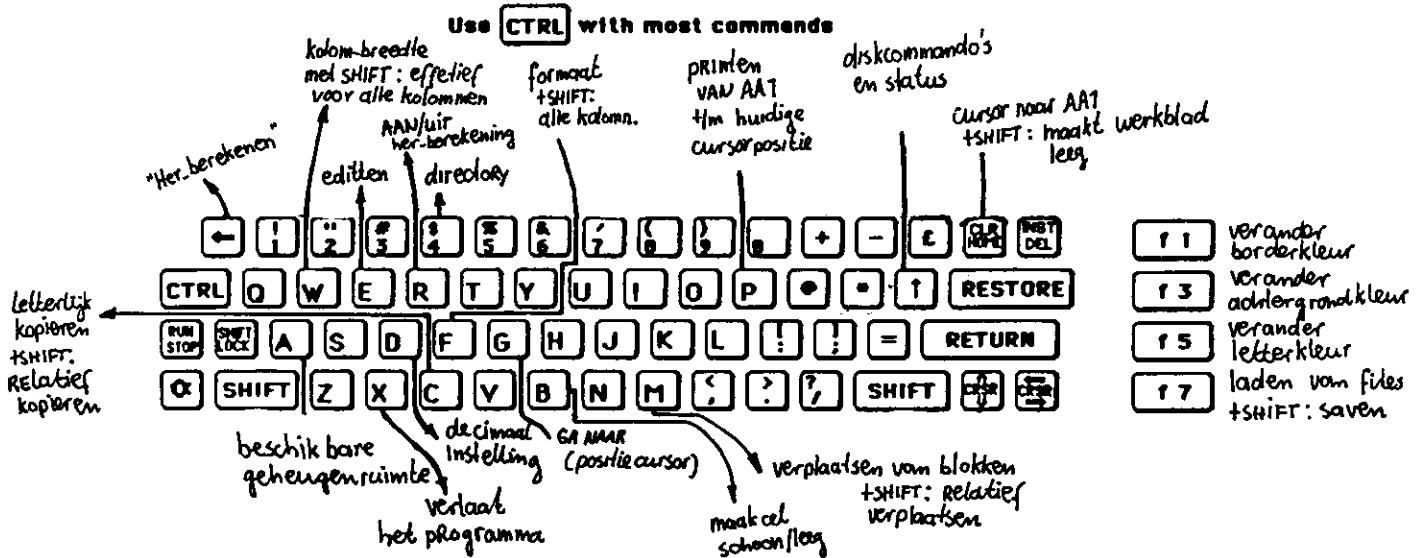 Use CTRL with most commands
kolom-breedte
met SHIFT: effetief
voor alle kolommen
AAN/uit
her-berekening
formaat
+SHIFT:
alle kolomn.
PRINten
VAN AA1
t/m huidige
cursorpositie
diskcommando's
en status
cursor naar AA1
+SHIFT: maakt werkblad
leeg
"Her_berekenen"
editten
directory
← ! 1 " 2 # 3 $ 4 % 5 & 6 ' 7 ( 8 ) 9 0 + - £ CLR HOME INST DEL
CTRL Q W E R T Y U I O P @ * ↑ RESTORE
RUN STOP SHFT LOCK A S D F G H J K L [ : ] ; = RETURN
SHIFT Z X C V B N M < , > . ? / SHIFT CRSR CRSR
f 1 verander
borderkleur
f 3 verander
achtergrondkleur
f 5 verander
letterkleur
f 7 laden van files
+SHIFT: saven
letterlijk
kopieren
+SHIFT:
RElatief
kopieren
beschikbare
geheugenruimte
verlaat
het pROgramma
decimaal
instelling
GA NAAR
(positie cursor)
maak cel
schoon/leeg
verplaatsen van blokken
+SHIFT: RElatief
verplaatsen